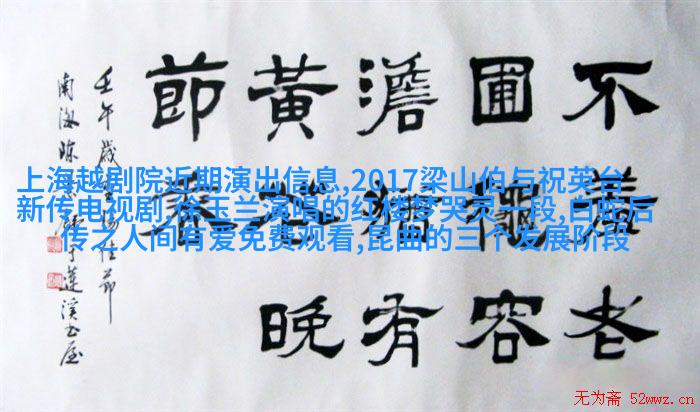 不老
圃容
澹猶有
黃晚
節
壬午歲佳節
南海蓮溪書屋
上海越剧院近期演出信息,2017梁山伯与祝英台
新传电视剧,徐玉兰演唱的红楼梦哭灵一段,白蛇后
传之人间有爱免费观看,昆曲的三个发展阶段
无为斋 52wwz.cn